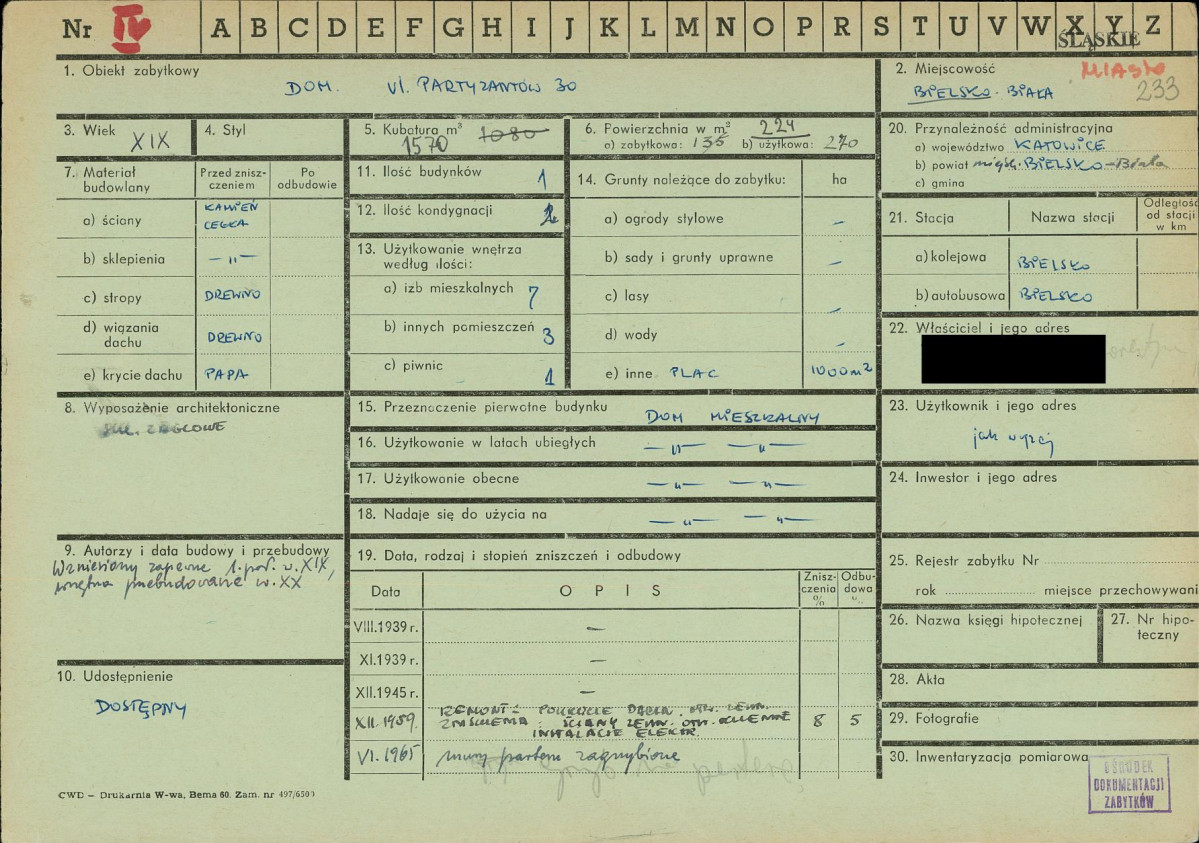 Nr IV A B C D E F G H I J K L M N O P R S T U V W X Y Z
ŚLĄSKIE
1. Obiekt zabytkowy
DOM. Ul. PARTYZANTÓW 30
2. Miejscowość MIASTO
BIELSKO-BIAŁA 233
3. Wiek XIX
4. Styl
5. Kubatura m³ 1080
1570
6. Powierzchnia w m² 224
a) zabytkowa: 135 b) użytkowa: 270
20. Przynależność administracyjna
a) województwo KATOWICE
b) powiat miejsk. BIELSKO-Biała
c) gmina
7. Materiał budowlany
Przed zniszczeniem
Po odbudowie
a) ściany KAMIEŃ CEGŁA
b) sklepienia — " —
c) stropy DREWNO
d) wiązania dachu DREWNO
e) krycie dachu PAPA
11. Ilość budynków 1
12. Ilość kondygnacji
13. Użytkowanie wnętrza
według ilości:
a) izb mieszkalnych 7
b) innych pomieszczeń 3
c) piwnic 1
14. Grunty należące do zabytku: ha
a) ogrody stylowe –
b) sady i grunty uprawne –
c) lasy –
d) wody –
e) inne PLAC 1000 m²
21. Stacja Nazwa stacji Odległość od stacji w km
a) kolejowa BIELSKO
b) autobusowa BIELSKO
22. Właściciel i jego adres
8. Wyposażenie architektoniczne
15. Przeznaczenie pierwotne budynku DOM MIESZKALNY
16. Użytkowanie w latach ubiegłych — " — — " —
17. Użytkowanie obecne — " — — " —
18. Nadaje się do użycia na — " — — " —
23. Użytkownik i jego adres
jak wyżej
24. Inwestor i jego adres
9. Autorzy i data budowy i przebudowy
Wzniesiony zapewne 1. poł. w. XIX,
wnętrza przebudowane w. XX
19. Data, rodzaj i stopień zniszczeń i odbudowy
Data OPIS Zniszczenia % Odbudowa %
VIII.1939 r. –
XI.1939 r. –
XII.1945 r. –
XII.1959. REMONT: POKRYCIE DACHU
ŚCIANY ZEWN. 8 5
INSTALACJE ELEKTR.
VI.1965 mury parteru zagrzybione
25. Rejestr zabytku Nr
rok miejsce przechowywani
26. Nazwa księgi hipotecznej
27. Nr hipoteczny
10. Udostępnienie
DOSTĘPNY
28. Akta
29. Fotografie
30. Inwentaryzacja pomiarowa
OŚRODEK
DOKUMENTACJI
ZABYTKÓW
CWD – Drukarnia W-wa, Bema 60. Zam. nr 497/6500